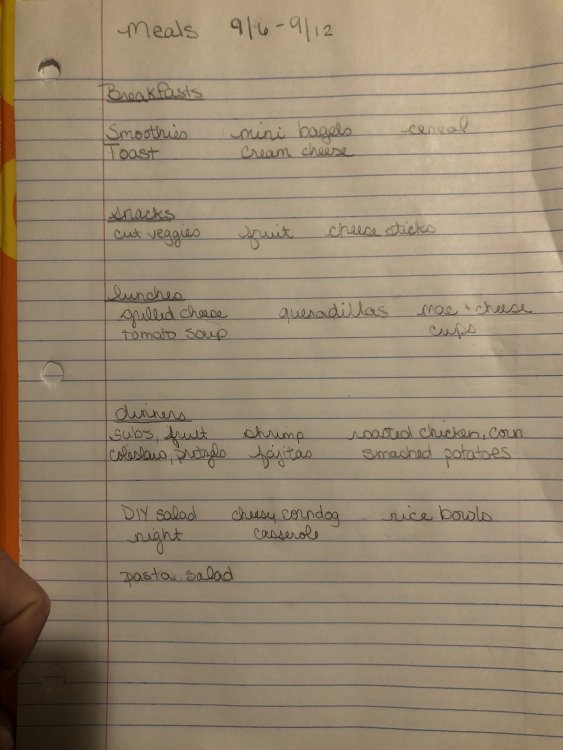 Meals 9/6 - 9/12
Breakfasts
Smoothies mini bagels cereal
Toast cream cheese
snacks
cut veggies fruit cheese sticks
lunches
grilled cheese quesadillas mac + cheese
tomato soup cups
dinners
subs, fruit shrimp roasted chicken, corn
coleslaw, pretzels fajitas smashed potatoes
DIY salad cheesy corndog rice bowls
night casserole
pasta salad